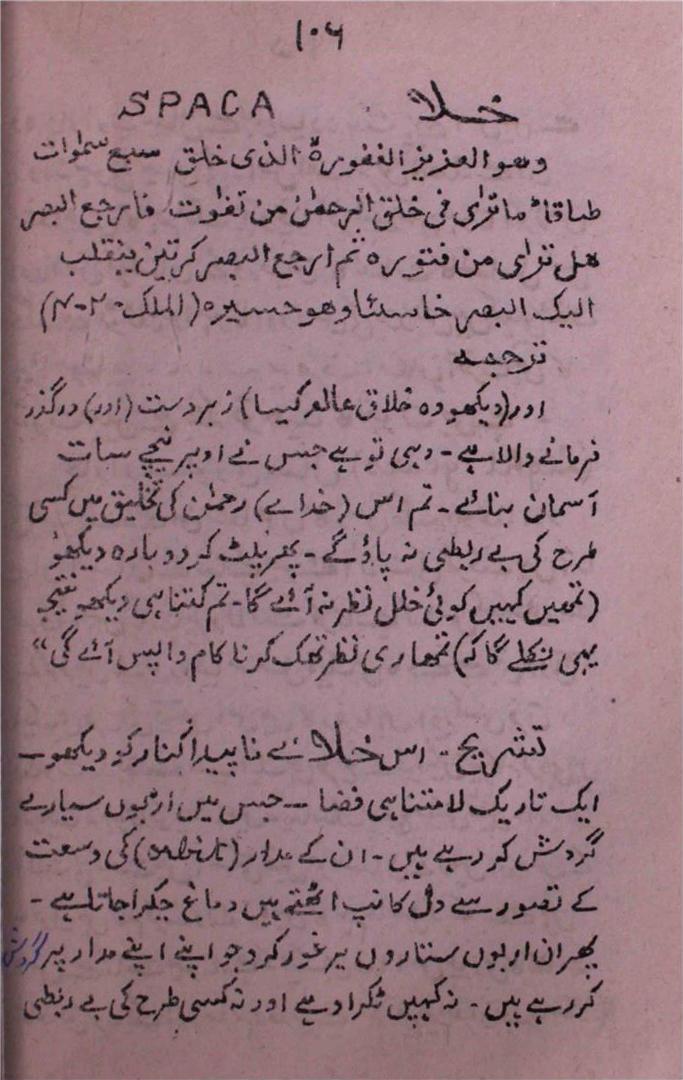 ۱۰۶
خلا SPACA
وھو العزیز الغفورہ الذی خلق سبع سمٰوات
طباقاً ماترٰی فی خلق الرحمٰن من تفٰوت فارجع البصر
ھل ترٰی من فتورہ ثم ارجع البصر کرتین ینقلب
الیک البصر خاسئا وھو حسیرہ (الملک-۲-۴)
ترجمہ
اور (دیکھو وہ خلاق عالم کیسا) زبردست (اور) درگذر
فرمانے والا ہے - وہی تو ہے جس نے اوپر نیچے سات
آسمان بنائے - تم اس (خدائے) رحمٰن کی تخلیق میں کسی
طرح کی بے ربطی نہ پاؤگے - پھر پلٹ کر دوبارہ دیکھو
(تمھیں کہیں کوئی خلل نظر نہ آئے گا - تم کتنا ہی دیکھو نتیجہ
یہی نکلے گا کہ) تمھاری نظر تھک کر ناکام واپس آئے گی“
تشریح - اس خلائے ناپیدا کنار کو دیکھو -
ایک تاریک لامتناہی فضا - جس میں اربوں سیارے
گردش کر رہے ہیں - ان کے مدار (orbits) کی وسعت
کے تصور سے دل کانپ اٹھتے ہیں دماغ چکرا جاتا ہے -
پھر ان اربوں ستاروں پر غور کرو جو اپنے اپنے مدار پر گردش
کر رہے ہیں - نہ کہیں ٹکراو ہے اور نہ کسی طرح کی بے ربطی